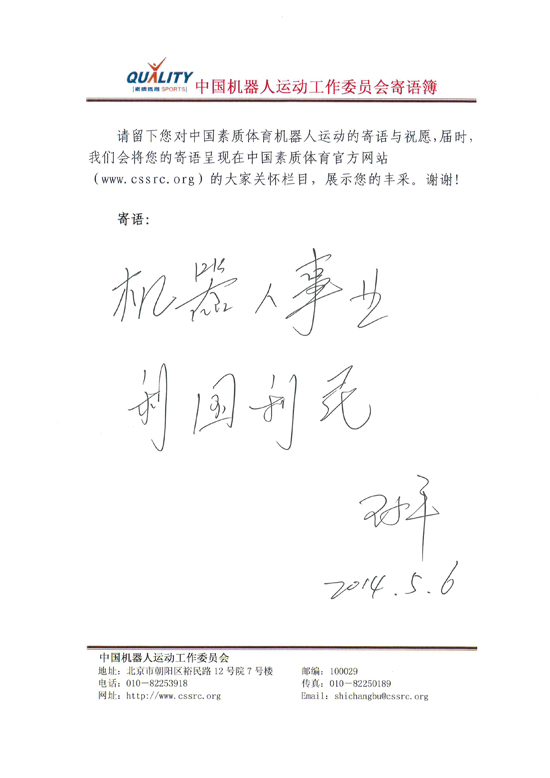 QUALITY
素质体育 SPORTS
中国机器人运动工作委员会寄语簿
请留下您对中国素质体育机器人运动的寄语与祝愿,届时,
我们会将您的寄语呈现在中国素质体育官方网站
(www.cssrc.org)的大家关怀栏目，展示您的丰采。谢谢!
寄语:
机器人事业
利国利民
2014.5.6
中国机器人运动工作委员会
地址: 北京市朝阳区裕民路 12 号院 7 号楼 邮编: 100029
电话: 010-82253918 传真: 010-82250189
网址: http://www.cssrc.org Email: shichangbu@cssrc.org